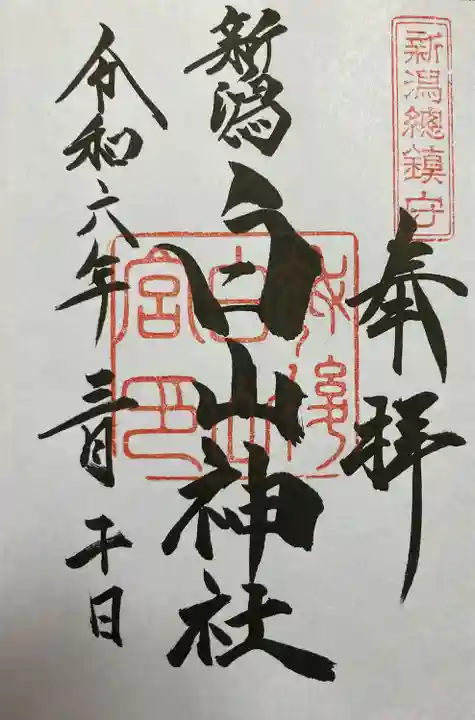 新潟總鎮守
奉拝
新潟白山神社
令和六年三月二十日